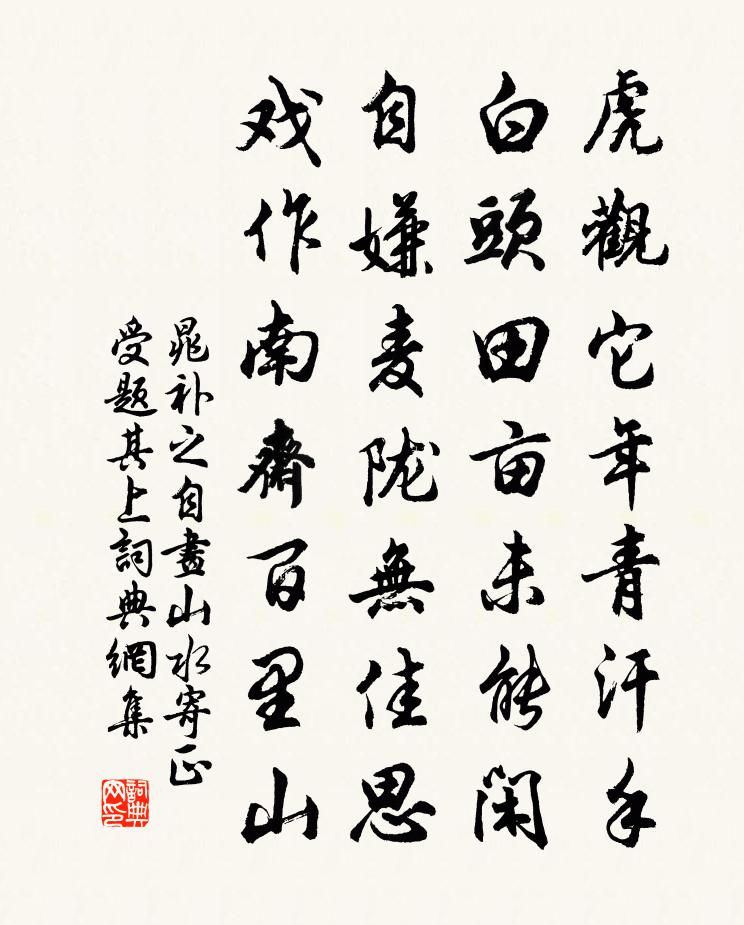 虎觀它年青汗手
白頭田亩未能閑
自嫌麦陇無佳思
戏作南齋百里山
晁补之自畫山水寄正
受題其上詞典網集
詞典网印